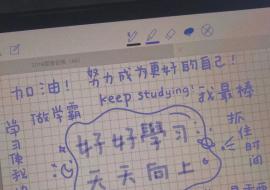 加油! 努力成为更好的自己!
做学霸 keep studying! 我最棒
好好學习
天天向上
学习使我
抓住时间